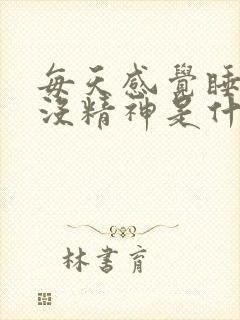 每天感覺睡
沒精神是什
林書育